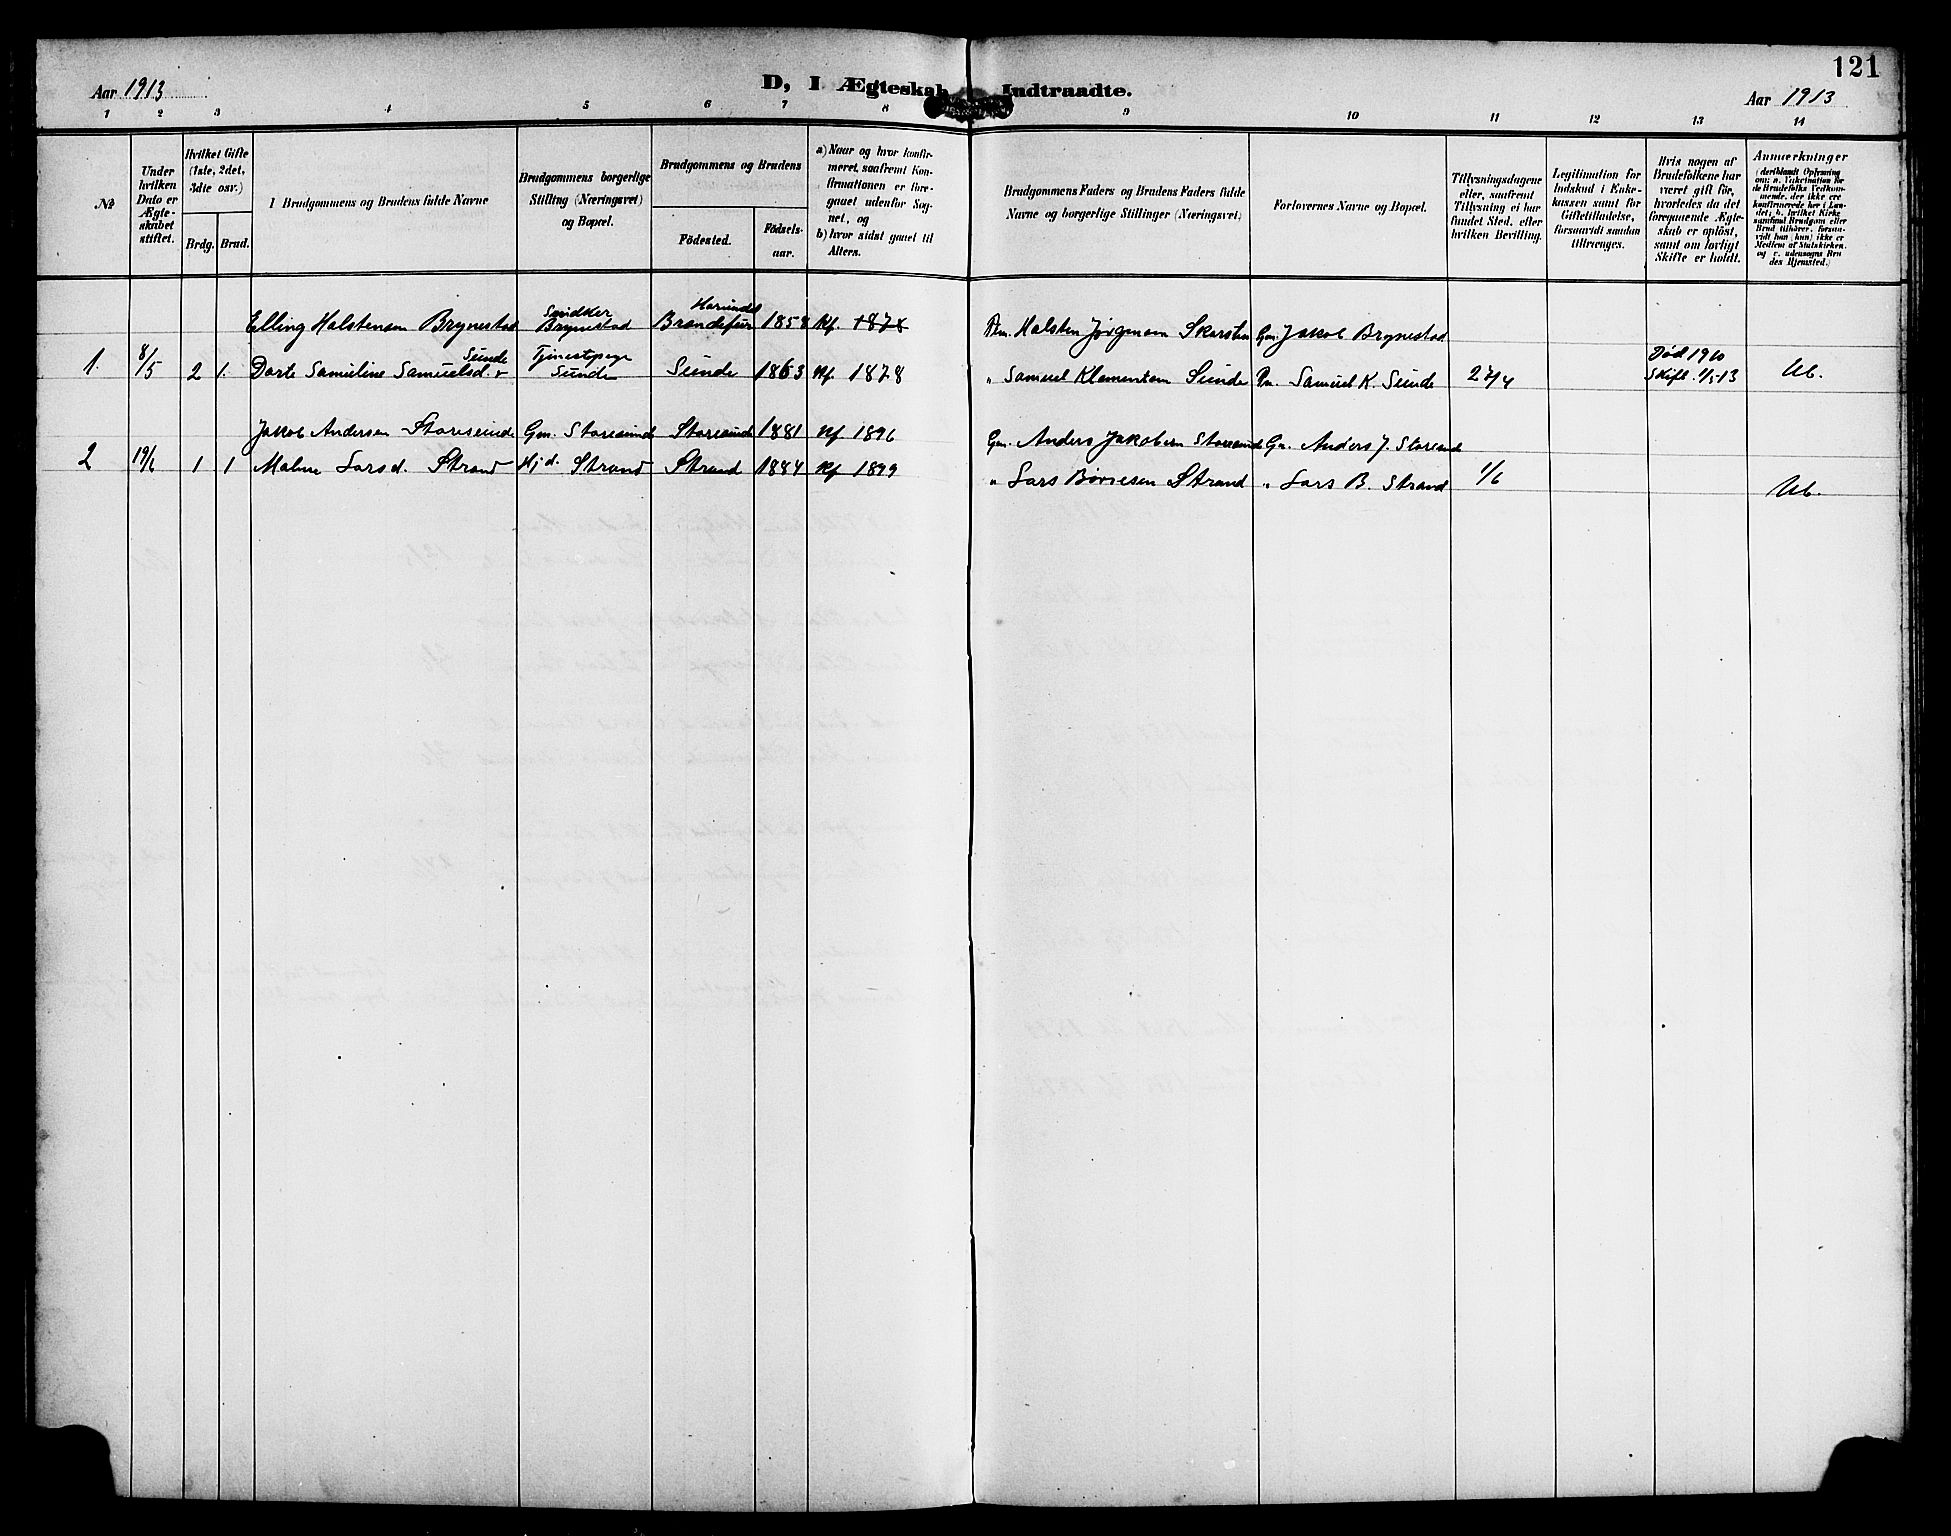 121
Aar 1913
D, I Ægteskab Indtraadte.
Aar 1913
1 2 3 4 5 6 7 8 9 10 11 12 13 14
№
Under hvilken Dato er Ægteskabet stiftet.
Hvilket Gifte (1ste, 2det, 3die osv.)
Brdg. Brud.
1 Brudgommens og Brudens fulde Navne
Brudgommens borgerlige Stilling (Næringsvei) og Bopæl.
Brudgommens og Brudens
Födested.
Födselsaar.
a) Naar og hvor konfirmeret, saafremt Konfirmationen er foregaaet udenfor Sognet, og
b) hvor sidst gaaet til Alters.
Brudgommens Faders og Brudens Faders fulde Navne og borgerlige Stillinger (Næringsvei)
Forlovernes Navne og Bopæl.
Tillysningsdagene eller, saafremt Tillysning ei har fundet Sted, efter hvilken Bevilling.
Legitimation for Indskud i Enkekassen samt for Giftetilladelse, forsaavidt saadan tiltrænges.
Hvis nogen af Brudefolkene har været gift før, hvorledes da det foregaaende Ægteskab er opløst, samt om lovligt Skifte er holdt.
Anmærkninger
(deriblandt Oplysning om: a. Vakcination for de Brudefolks Vedkommende, der ikke ere konfirmerede her i Landet; b. hvilket Kirkesamfund Brudgom eller Brud tilhører, forsaavidt han (hun) ikke er Medlem af Statskirken, og c. udensogns Brudes Hjemsted.)
Elling Halstensen Brynestad Snedker Brynestad 1858 Kf. 1878 Halsten Jørgensen Gm. Jakob Brynestad
1. 8/5 2 1. Dorte Samueline Samuelsd. Sunde Sunde Sunde 1863 Kf 1878 " Samuel Klementsen Sunde Samuel K. Sunde 27/4 Død 1910 Skift. 1/5-13
Jakob Andersen Storesunde Gm. Storesund Storesund 1881 Kf 1896 Gm. Anders Jakobsen Storesunde Gm. Anders J. Storesund
2 19/6 1 1 Malene Larsd. Strand Hjd. Strand Strand 1884 Kf 1899 " Lars Børresen Strand " Lars B. Strand 1/6